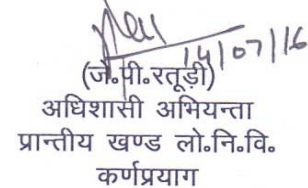 14/07/16
(जे.पी.रतूड़ी)
अधिशासी अभियन्ता
प्रान्तीय खण्ड लो.नि.वि.
कर्णप्रयाग